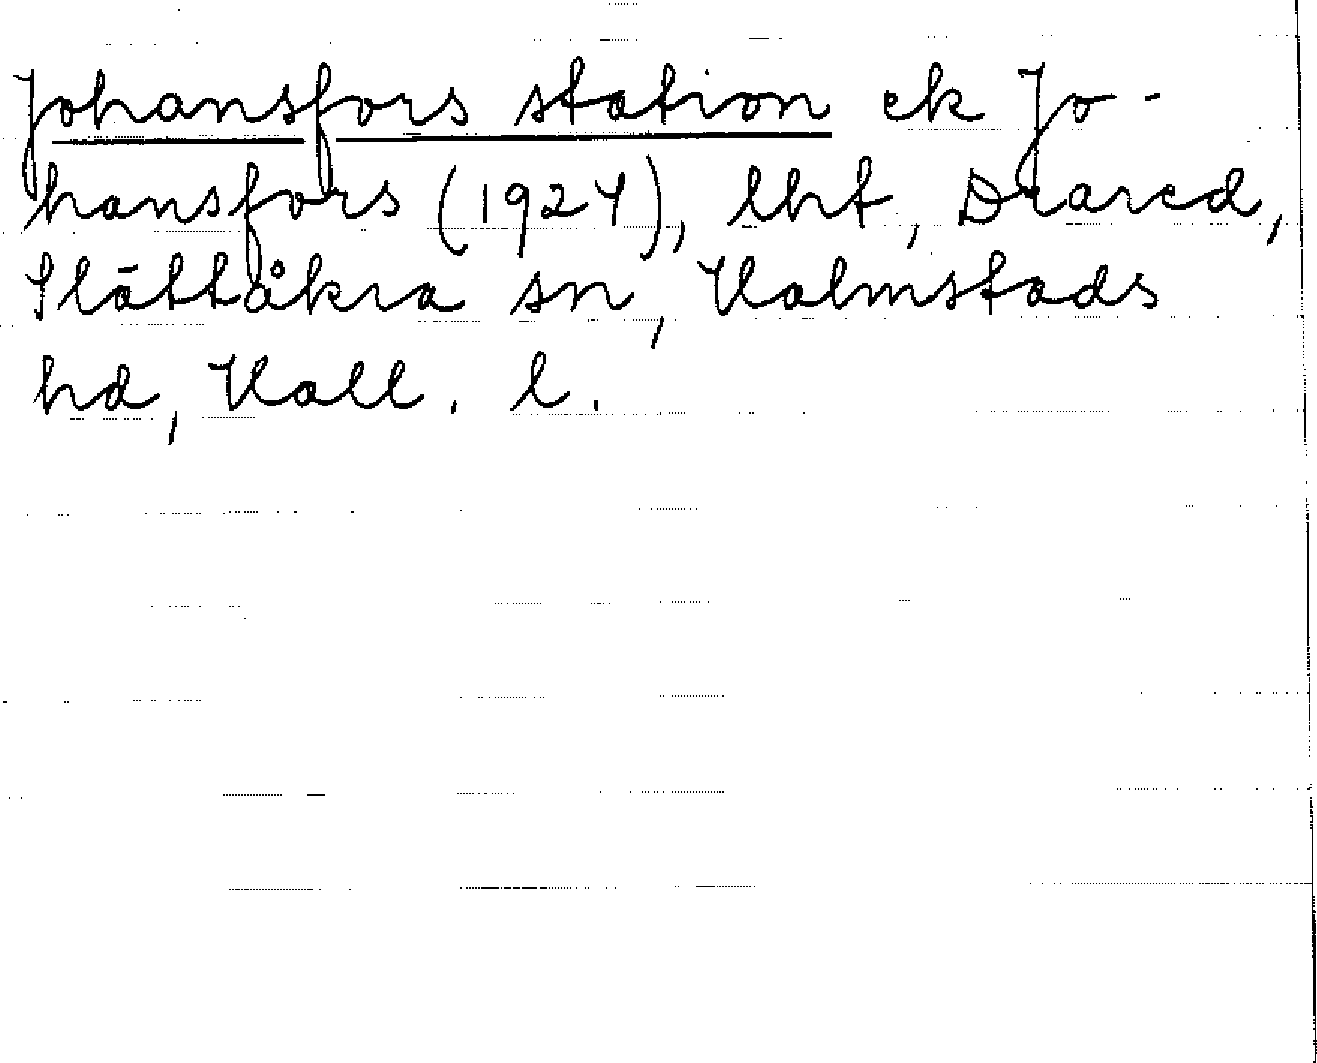 Johansfors station ek Jo-
hansfors (1927), lht, Drared,
Slättåkra sn, Halmstads
hd, Hall. l.